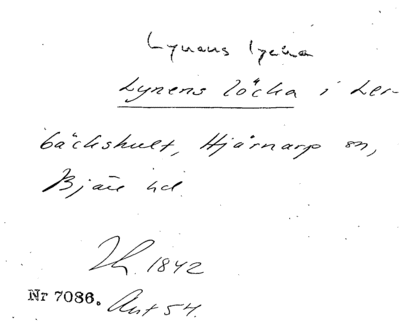 Lynens lycka
Lynens löcka i Ler-
bäckshult, Hjärnarp sn,
Bjäre hd
Lh. 1842
Nr 7086. Ant 54.